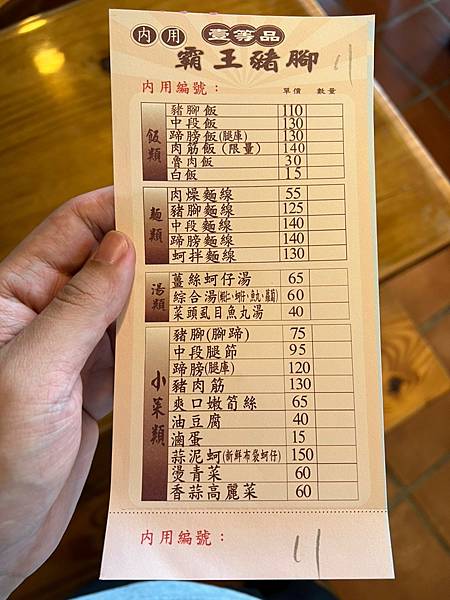 內用 壹等品
霸王豬腳 11
內用編號： 單價 數量
飯類
豬腳飯 110
中段飯 130
蹄膀飯(腿庫) 130
肉筋飯(限量) 140
魯肉飯 30
白飯 15
麵類
肉燥麵線 55
豬腳麵線 125
中段麵線 140
蹄膀麵線 140
蚵拌麵線 130
湯類
薑絲蚵仔湯 65
綜合湯 60
菜頭虱目魚丸湯 40
小菜類
豬腳(腳蹄) 75
中段腿節 95
蹄膀(腿庫) 120
豬肉筋 130
爽口嫩筍絲 65
油豆腐 40
滷蛋 15
蒜泥蚵(新鮮布袋蚵仔) 150
燙青菜 60
香蒜高麗菜 60
內用編號： 11